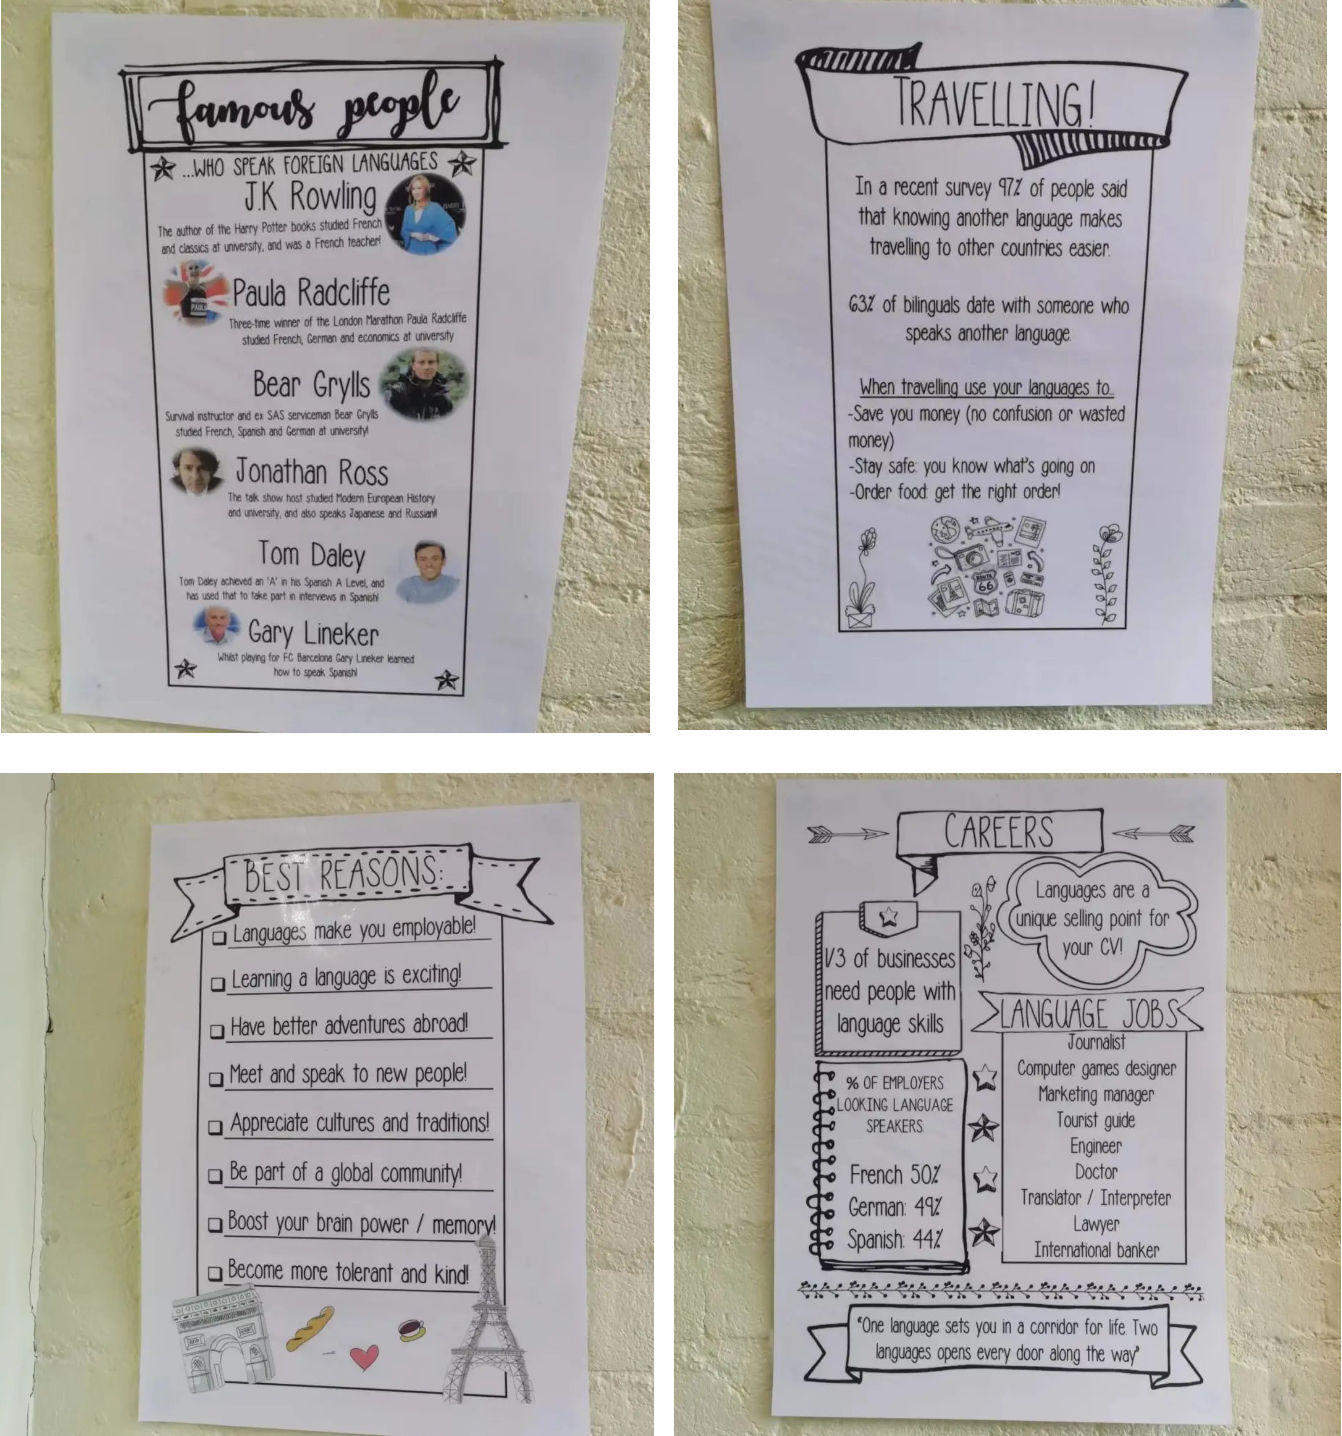 famous people
...WHO SPEAK FOREIGN LANGUAGES
J.K Rowling
The author of the Harry Potter books studied French
and classics at university, and was a French teacher!
Paula Radcliffe
Three-time winner of the London Marathon Paula Radcliffe
studied French, German and economics at university
Bear Grylls
Survival instructor and ex SAS serviceman Bear Grylls
studied French, Spanish and German at university!
Jonathan Ross
The talk show host studied Modern European History
and university, and also speaks Japanese and Russian!!
Tom Daley
Tom Daley achieved an 'A' in his Spanish A Level, and
has used that to take part in interviews in Spanish!
Gary Lineker
Whilst playing for FC Barcelona Gary Lineker learned
how to speak Spanish!
TRAVELLING!
In a recent survey 97% of people said
that knowing another language makes
travelling to other countries easier.
63% of bilinguals date with someone who
speaks another language.
When travelling use your languages to...
-Save you money (no confusion or wasted
money)
-Stay safe: you know what's going on
-Order food: get the right order!
ROUTE
66
BEST REASONS:
Languages make you employable!
Learning a language is exciting!
Have better adventures abroad!
Meet and speak to new people!
Appreciate cultures and traditions!
Be part of a global community!
Boost your brain power / memory!
Become more tolerant and kind!
CAREERS
Languages are a
unique selling point for
your CV!
1/3 of businesses
need people with
language skills
LANGUAGE JOBS
Journalist
Computer games designer
Marketing manager
Tourist guide
Engineer
Doctor
Translator / Interpreter
Lawyer
International banker
% OF EMPLOYERS
LOOKING LANGUAGE
SPEAKERS
French 50%
German: 49%
Spanish: 44%
"One language sets you in a corridor for life. Two
languages opens every door along the way"